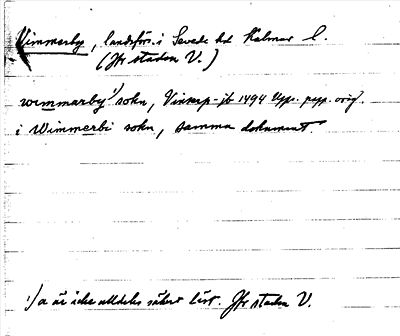 Vimmerby, landsförs. i Sevede hd Kalmar l.
(Jfr staden V.)
wimmarby¹⁾ sokn, Vinkrp-jb 1494 Upps. papp. orig.
i Wimmerbi sokn, samma dokument.
¹⁾ a är icke alldeles säkert läst. Jfr staden V.